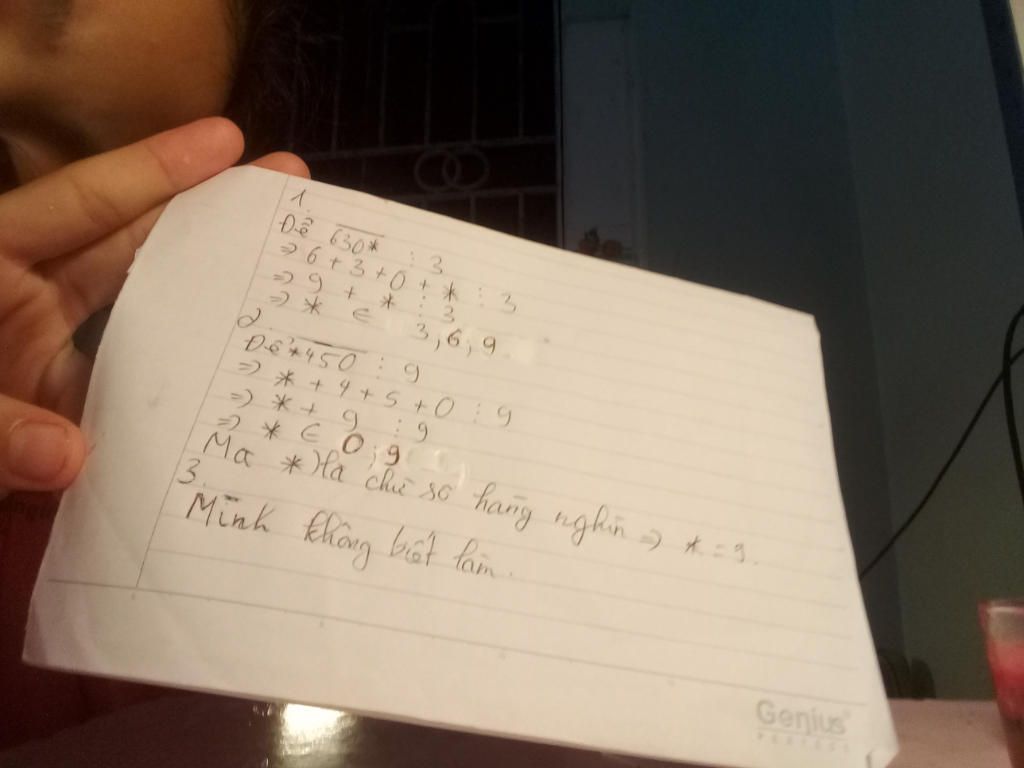 1.
Để 630* ⋮ 3
⇒ 6 + 3 + 0 + * ⋮ 3
⇒ 9 + * ⋮ 3
⇒ * ∈ 3, 6, 9
2.
Để *450 ⋮ 9
⇒ * + 4 + 5 + 0 ⋮ 9
⇒ * + 9 ⋮ 9
⇒ * ∈ 0; 9
Mà * là chữ số hàng nghìn ⇒ * = 9.
3.
Mình không biết làm.
Genius